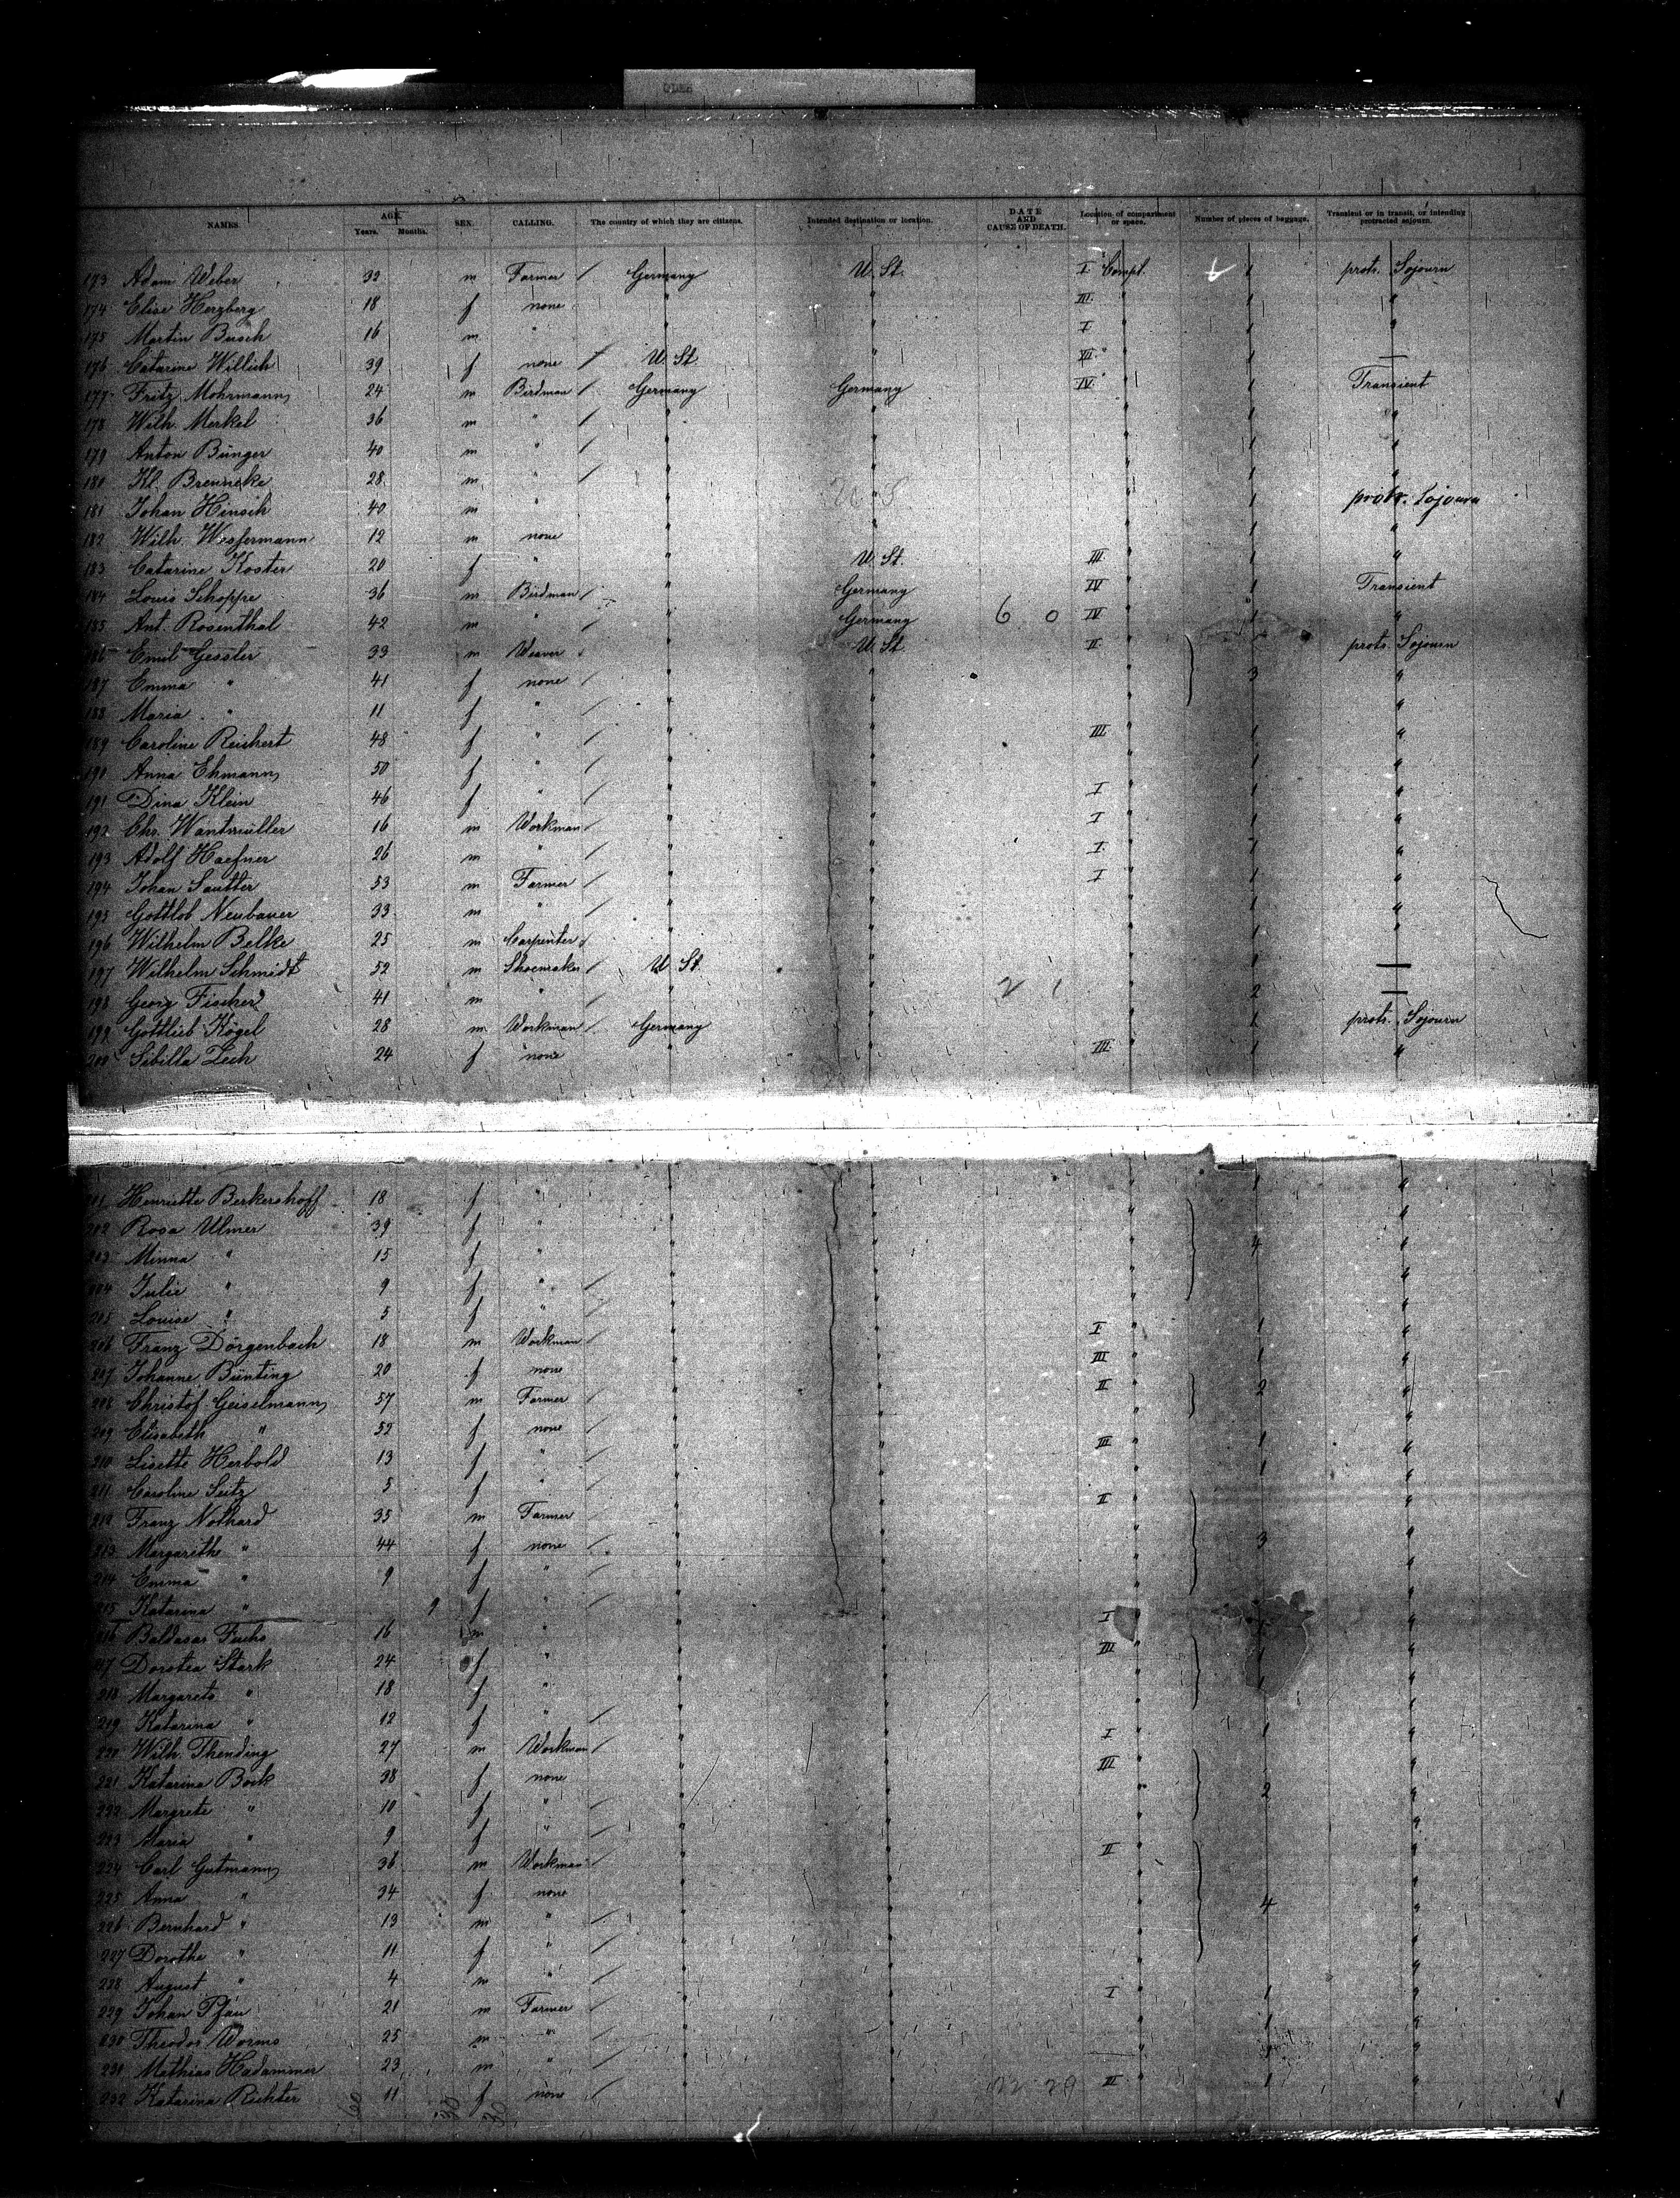 NAMES. AGE. Years. Months. SEX. CALLING. The country of which they are citizens. Intended destination or location. DATE AND CAUSE OF DEATH. Location of compartment or space. Number of pieces of baggage. Transient or in transit, or intending protracted sojourn.
173 Adam Weber 32 m Farmer / Germany U. St. I Compt. 1 protr. Sojourn
174 Elise Herzberg 18 f none " " III " 1 "
175 Martin Busch 16 m " " " I " 1 "
176 Catarine Willich 39 f none / U. St. " VII " 1 —
177 Fritz Mohrmann 24 m Birdman / Germany Germany IV " 1 Transient
178 Wilh. Merkel 36 m " / " " " 1 "
179 Anton Bünger 40 m " / " " " 1 "
180 Kl. Brenneke 28 m " / " " " 1 "
181 Johan Hinsch 40 m " " U S " 1 protr. Sojourn
182 Wilh. Wessermann 12 m none " " " 1 "
183 Catarine Koster 20 f " " U. St. III " 1 "
184 Louis Schoppe 36 m Birdman / " Germany IV " 1 Transient
185 Ant. Rosenthal 42 m " " Germany 6 0 IV " 1 "
186 Emil Gessler 33 m Weaver " U. St. II " protr. Sojourn
187 Emma " 41 f none / " " " 3 "
188 Maria " 11 f " / " " " "
189 Caroline Reichert 48 f " / " " III " 1 "
190 Anna Ehmann 50 f " / " " " 1 "
191 Dina Klein 46 f " / " " I " 1 "
192 Chr. Wantmüller 16 m Workman / " " I " 1 "
193 Adolf Haefner 26 m " / " " I " 1 "
194 Johan Sautter 53 m Farmer / " " I " 1 "
195 Gottlob Neubauer 33 m " / " " " 1 "
196 Wilhelm Belke 25 m Carpenter / " " " 1 "
197 Wilhelm Schmidt 52 m Shoemaker / U. St. " " 1 —
198 Georg Fischer 41 m " " " 2 1 " 2 —
199 Gottlieb Kögel 28 m Workman / Germany " " 1 protr. Sojourn
200 Sibilla Zech 24 f none " " III " 1 "
201 Henriette Berkershoff 18 f " " " " 1 "
202 Rosa Ulmer 39 f " " " " "
203 Minna " 15 f " " " " 4 "
204 Julie " 9 f " / " " " "
205 Louise " 5 f " / " " " "
206 Franz Dörgenbach 18 m Workman / " " I " 1 "
207 Johanne Bünting 20 f none " " III " 1 "
208 Christof Geiselmann 57 m Farmer / " " II " 2 "
209 Elisabeth " 52 f none / " " " "
210 Lisette Herbold 13 f " / " " III " 1 "
211 Caroline Seitz 5 f " / " " " 1 "
212 Franz Nothard 35 m Farmer / " " II " "
213 Margarith " 44 f none / " " " 3 "
214 Emma " 9 f " / " " " "
215 Katarina " 9 f " / " " " "
216 Baldasar Fuchs 16 m " / " " I " 1 "
217 Dorotea Stark 24 f " " " III " 1 "
218 Margareta " 18 f " " " " 1 "
219 Katarina " 12 f " / " " " "
220 Wilh. Thending 27 m Workman / " " I " 1 "
221 Katarina Bock 38 f none " " III " "
222 Margrete " 10 f " / " " " 2 "
223 Maria " 9 f " / " " " "
224 Carl Gutmann 36 m Workman / " " II " "
225 Anna " 34 f none " " " "
226 Bernhard " 13 m " / " " " 4 "
227 Dorothe " 11 f " / " " " "
228 August " 4 m " / " " " "
229 Johan Pfau 21 m Farmer / " " I " 1 "
230 Theodor Worms 25 m " / " " " 1 "
231 Mathias Hadammer 23 m " / " " " 1 "
232 Katarina Richter 11 f none / " " 22 29 III " 1 "